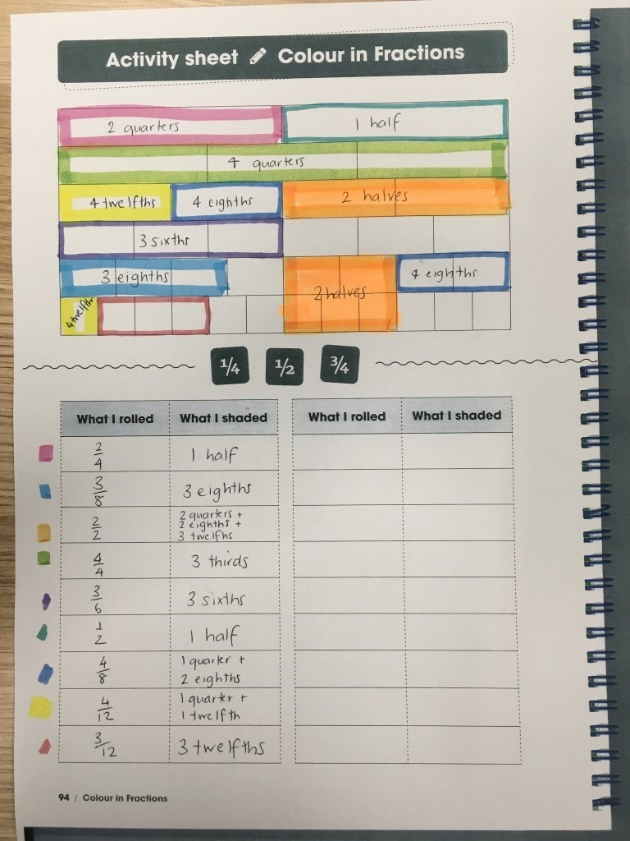 Activity sheet Colour in Fractions
2 quarters 1 half
4 quarters
4 twelfths 4 eighths 2 halves
3 sixths
3 eighths 2 halves 4 eighths
4 twelfths
1/4 1/2 3/4
What I rolled What I shaded What I rolled What I shaded
2/4 1 half
3/8 3 eighths
2/2 2 quarters +
2 eighths +
3 twelfhs
4/4 3 thirds
3/6 3 sixths
1/2 1 half
4/8 1 quarter +
2 eighths
4/12 1 quarter +
1 twelfth
3/12 3 twelfths
94 / Colour in Fractions